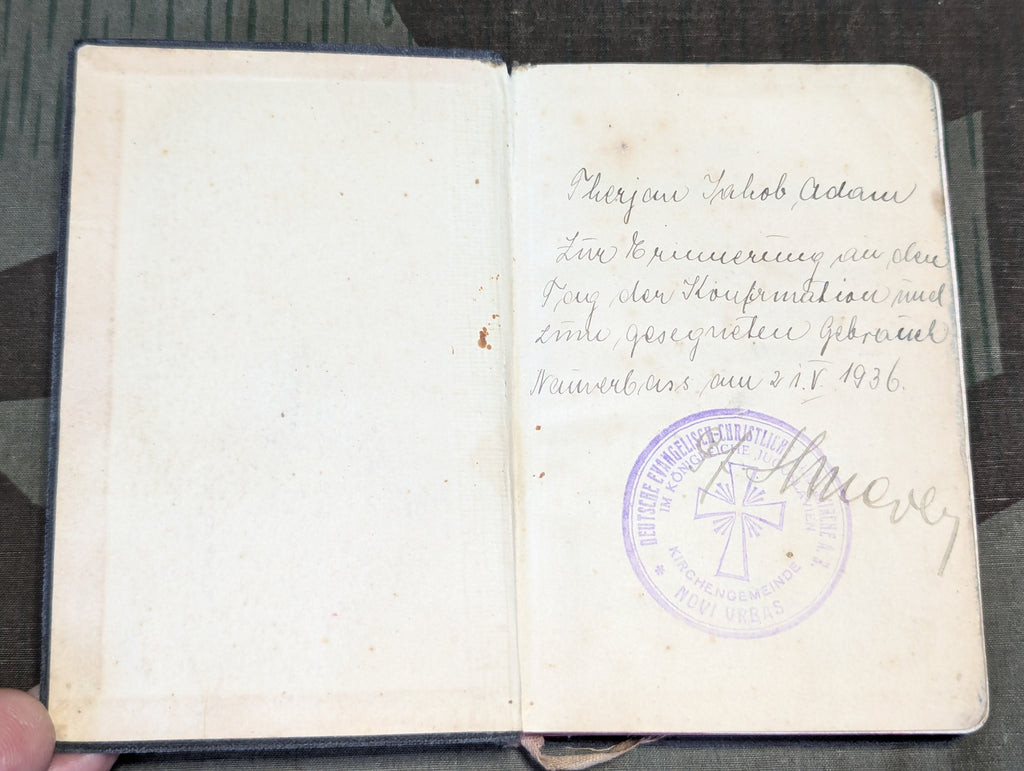 Therjan Jakob Adam
Zur Erinnerung an den
Tag der Konfirmation und
zum gesegneten Gebrauch
Neuwerbass am 21.V. 1936.
DEUTSCHE EVANGELISCH-CHRISTLICHE KIRCHE A. B.
IM KÖNIGREICHE JUGOSLAVIEN
KIRCHENGEMEINDE
* NOVI VRBAS